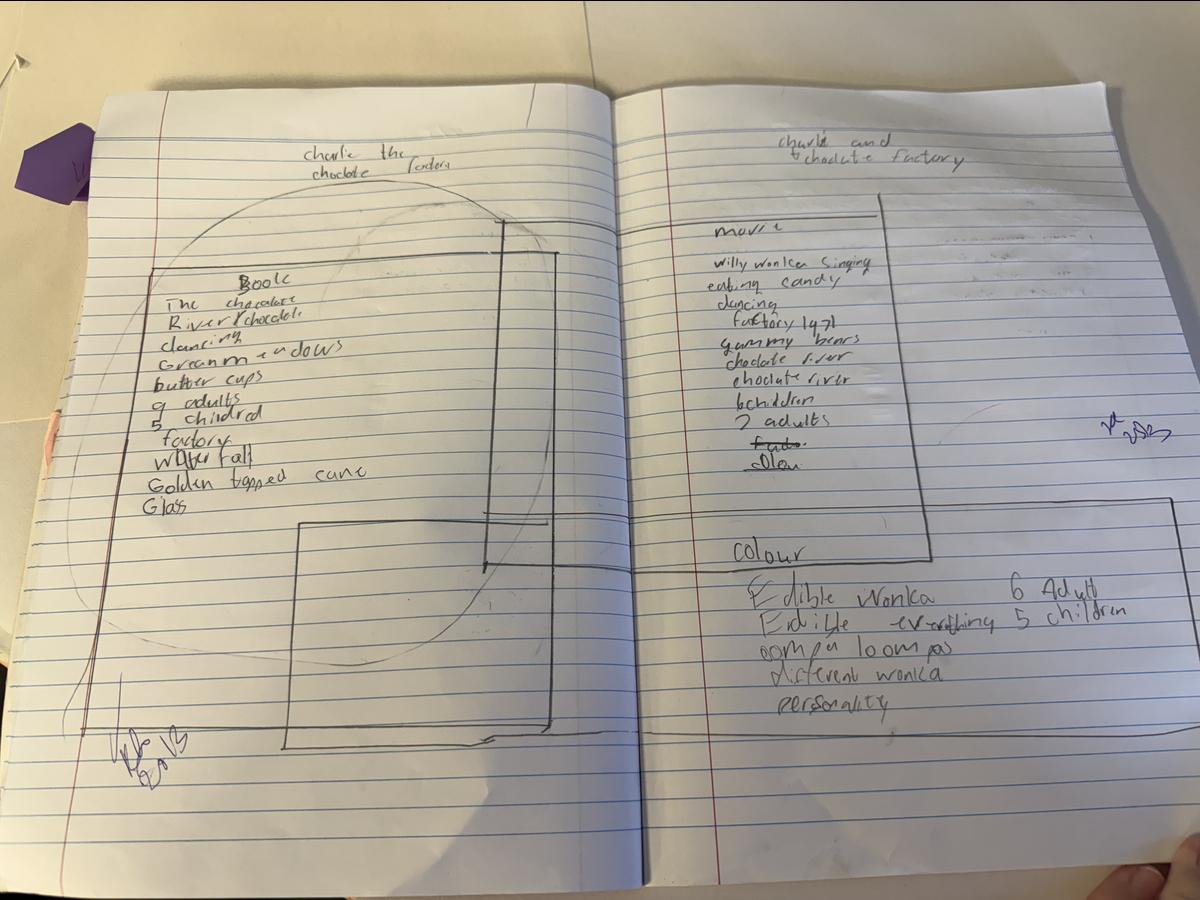 charlie the
choclate
Book
The chocolate
River/chocolate
dancing
Greanmendows
butter cups
9 adults
5 childred
factory
Water fall
Golden topped cane
Glass
charlie and
choclate factory
movie
willy wonka Singing
eating candy
dancing
factory 1971
gummy bears
choclate river
choclate river
6childern
7 adults
colour
Edible Wonka 6 Adult
Edible everything 5 children
oompa loompas
different wonka
personality